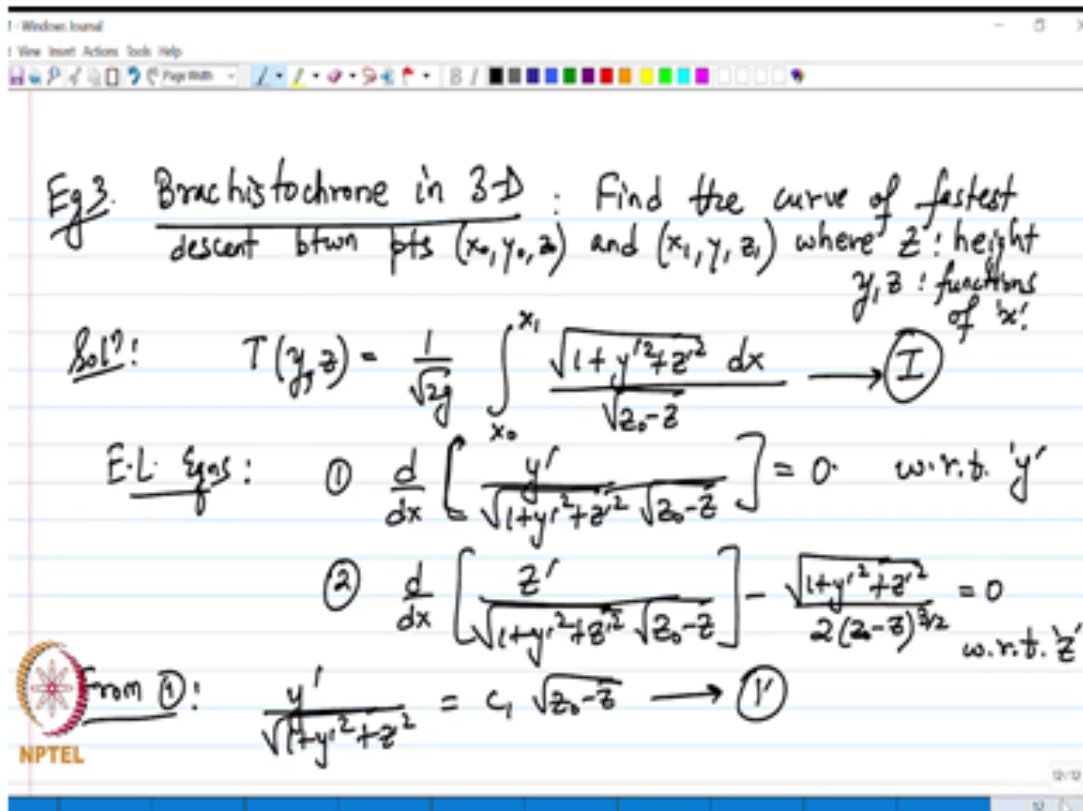 - Windows Journal
View Insert Actions Tools Help
Page Width
B I
Eg 3. Brachistochrone in 3-D : Find the curve of fastest
descent btwn pts (x₀, y₀, z₀) and (x₁, y₁ z₁) where z : height
y, z : functions
of 'x'.
Solⁿ: T(y, z) = 1/√2g ∫_{x₀}^{x₁} √(1+y'²+z'²) dx / √(z₀-z) → I
E.L. Eqns : ① d/dx [ y' / (√(1+y'²+z'²) √(z₀-z)) ] = 0. w.r.t. 'y'
② d/dx [ z' / (√(1+y'²+z'²) √(z₀-z)) ] - √(1+y'²+z'²) / 2(z₀-z)^{3/2} = 0
w.r.t. 'z'
From ①: y' / √(1+y'²+z²) = c₁ √(z₀-z) → 1'
NPTEL
12/12